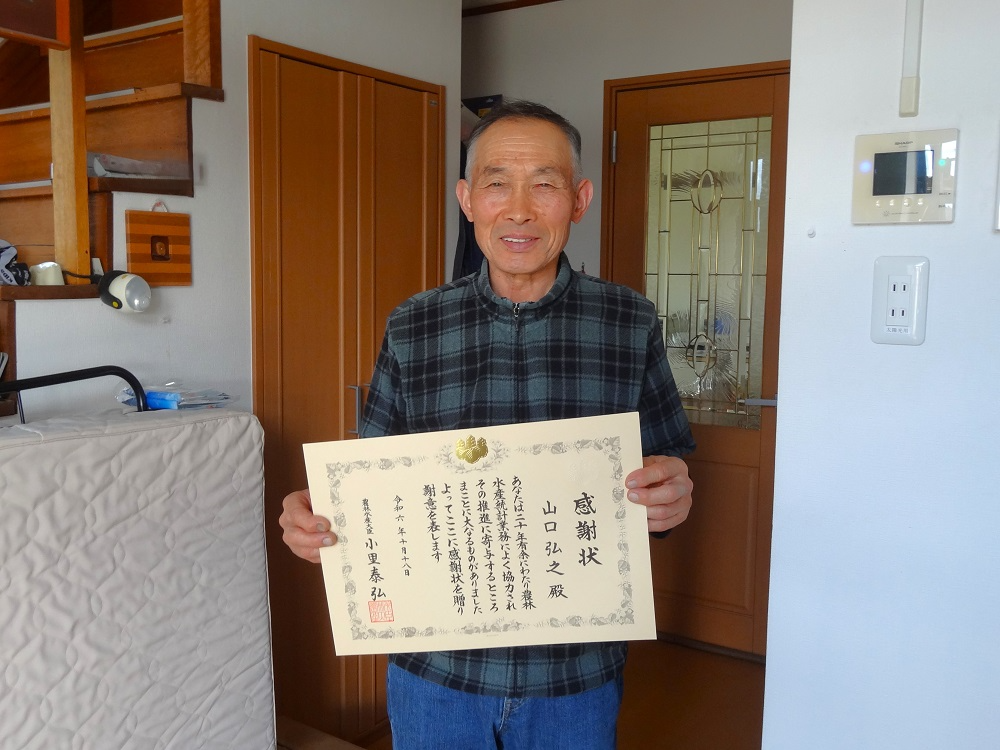 感謝状
山口弘之殿
あなたは二十年有余にわたり農林
水産統計業務によく協力され
その推進に寄与するところ
まことに大なるものがありました
よってここに感謝状を贈り
謝意を表します
令和六年十月十八日
農林水産大臣 小里泰弘
SHARP